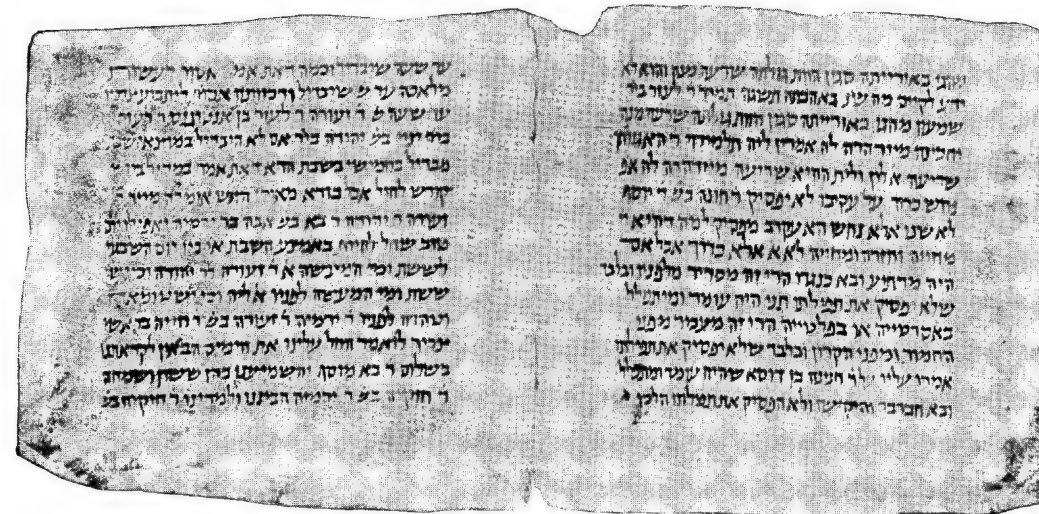 והגי באורייתה סגין הוות גולתה שרעה מנה והוא לא
ידע לקיים מה שנ באהבתה תשגה תמיד ר לעזר ביר
שמעון מהגי באורייתה סגין הוות גולתה שרעה מנה
מיזדהרה לה אמרין ליה תלמידוי ר
שריעה א לון ולית ההיא שריעה מיזדהיר לה אפ
נחש כרוך על עקיבו לא יפסיק ר חונה בש ר יוסה
לא שנו אלא נחש הא עקרב מפסיק למה דהיא ר
מחייה וחזרה ומחייה לא א אלא כרוך אבל אם
היה מרתיע ובא כנגדו הרי זה מסתיר מלפניו ובלבד
שלא יפסיק את תפילתו תני היה עומד ומיתפלל
באסרטייה או בפלטייה הרי זה מעביר מפני
החמור ומפני הקרון ובלבד שלא יפסיק את תפילתו
אמרו עליו על ר חנינה בן דוסא שהיה עומד ומתפלל
ובא חברבר והיכישו ולא הפסיק את תפילתו הלכו
עד ששה שיבדיל וכמר דאת אמר אסור לעשות
מלאכה עד ש שיבדיל ודכוותה אסור
עד ששה ש ר זעורה ר לעזר בן אנטיגנס ר לעזר
ינאי בש יהודה ביר אם לא הבדיל במוצאי
מבדיל בחמישי בשבת הדא דאת אמר
קודש לחול אבל בורא מאורי האש אומרה מייד
זעורה ר יהודה ר בא בש אבה בר ירמיה ואפילו
שחל להיות באמצע השבת אי בין יום השביעי
לששת ימי המעשה א ר זעורה לר יהודה וכי יש
ששת ימי המעשה לפניו א ליה וכי יש טומאה
וטהרה לפניו ר ירמיה ר זעורה בש ר חייה בר אשי
צריך לומר החל עלינו את הימים הבאין לקראתנו
בשלום ר בא מוסף והשמיענו בהן ששון ושמחה
ר חזקיה בש ר ירמיה הבינינו ולמדינו ר חזקיה בש